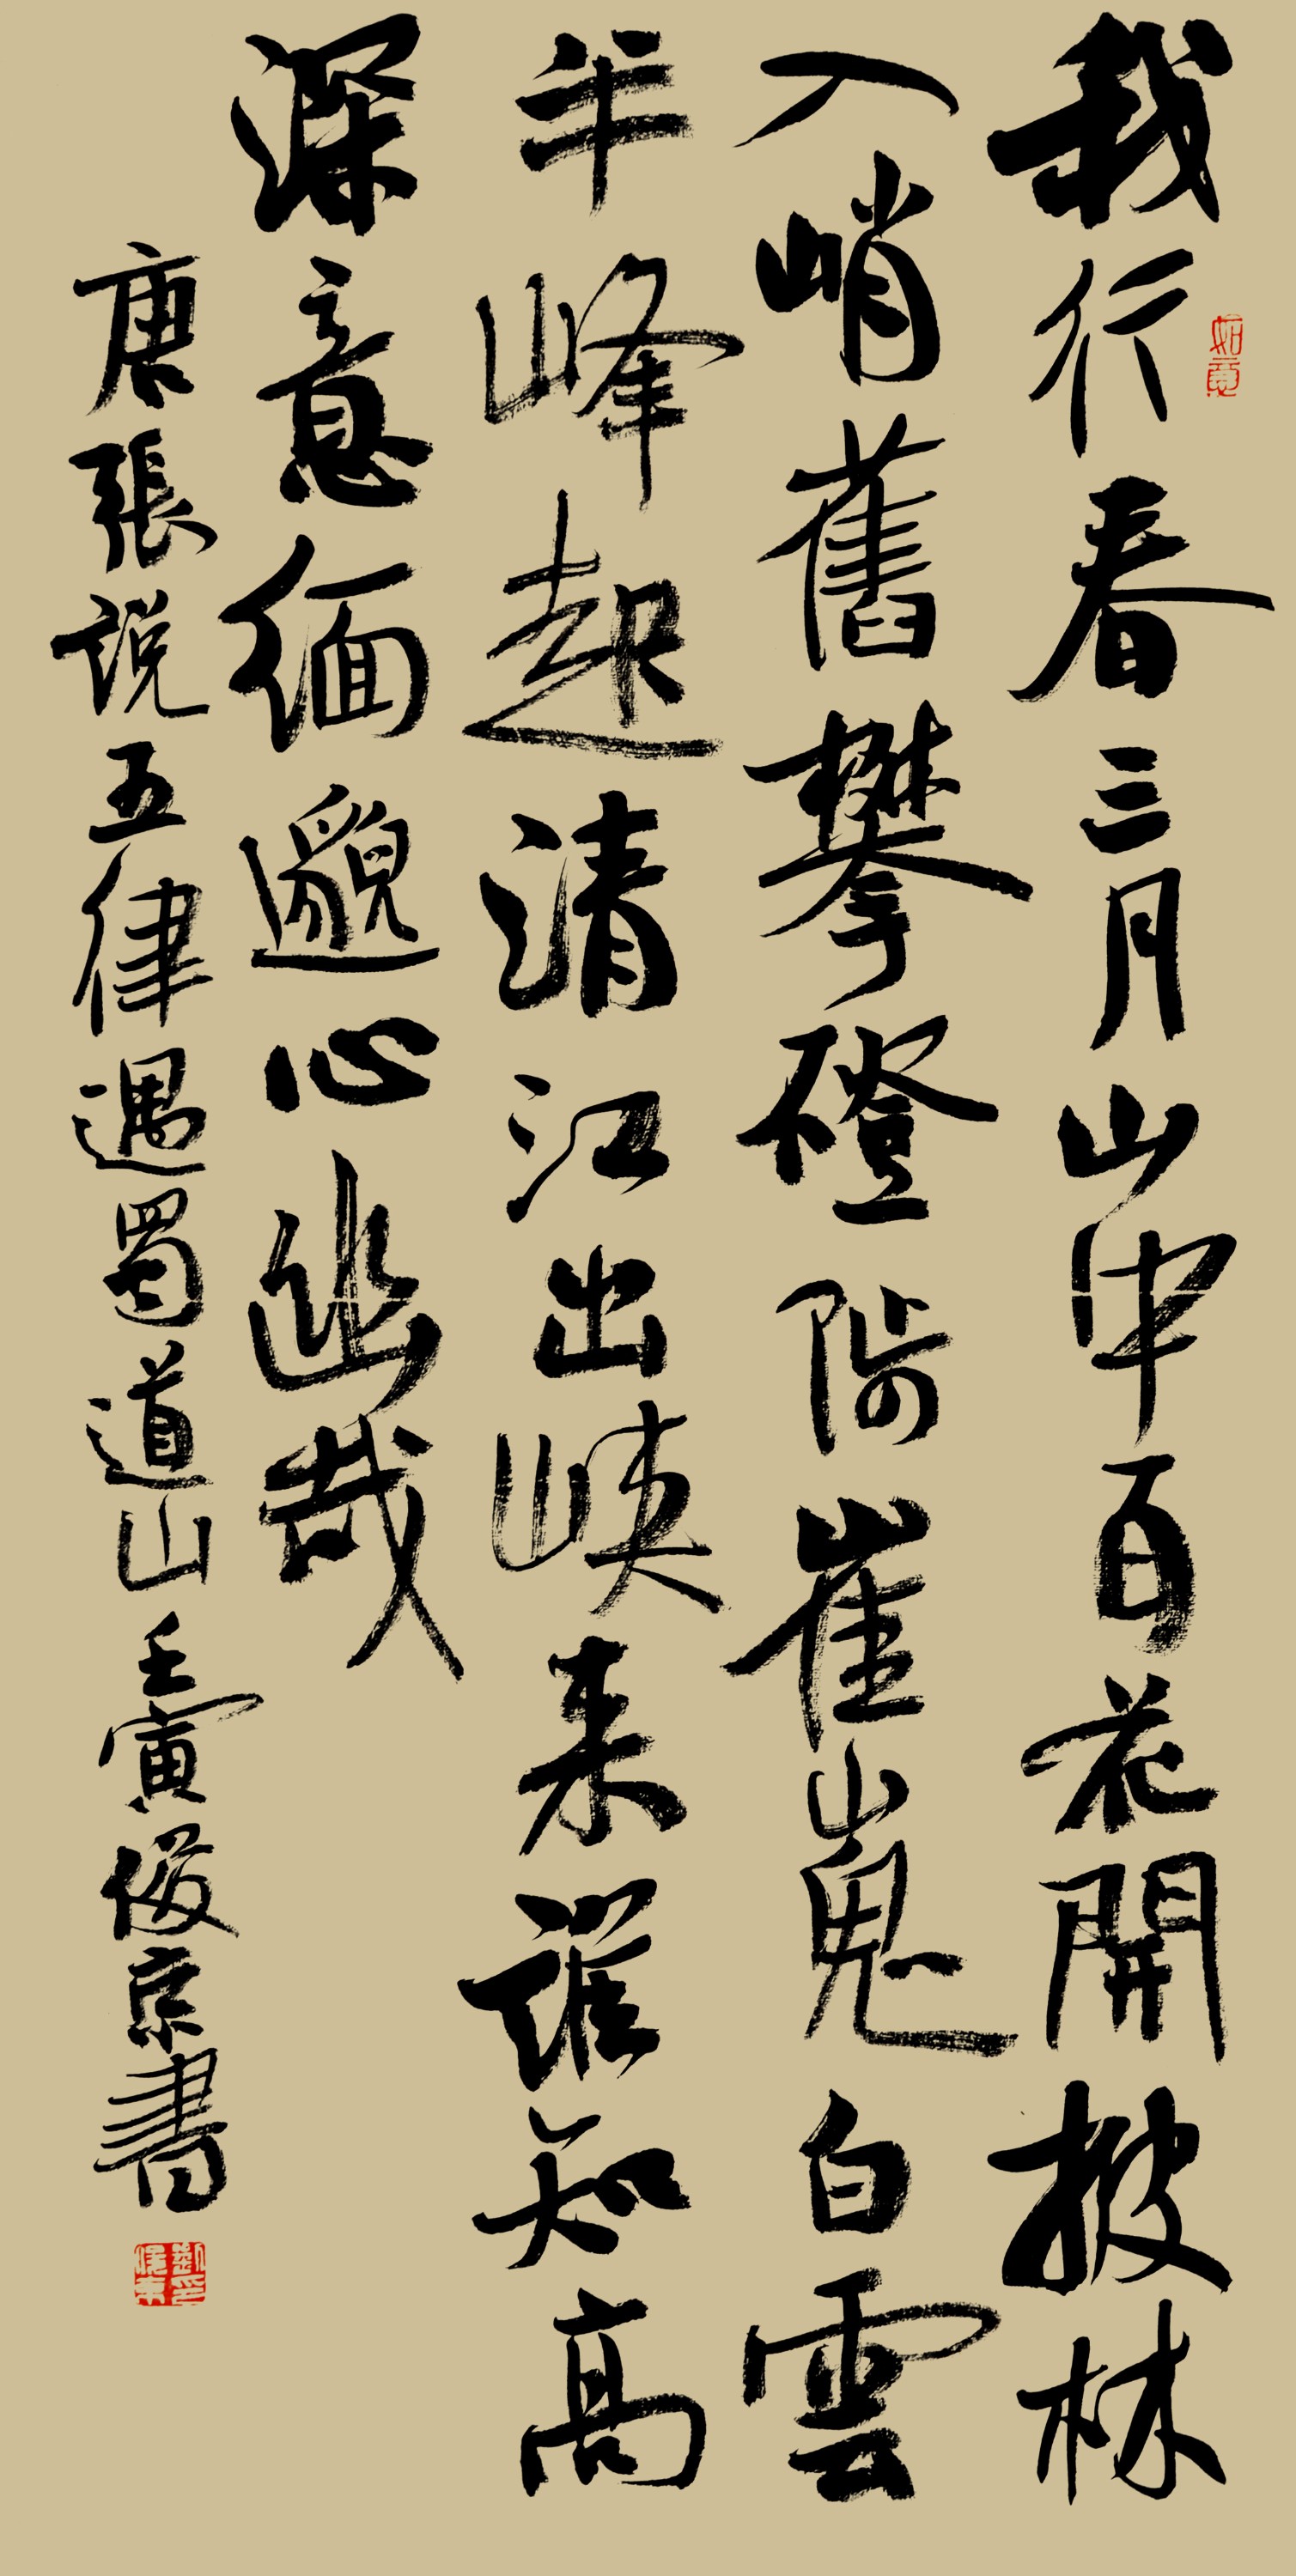 如意
我行春三月山中百花開披林
入峭舊攀磴陟崔嵬白雲
半峰起清江出峽来誰知高
深意緬邈心幽哉
唐張説五律遇蜀道山壬寅俊京書